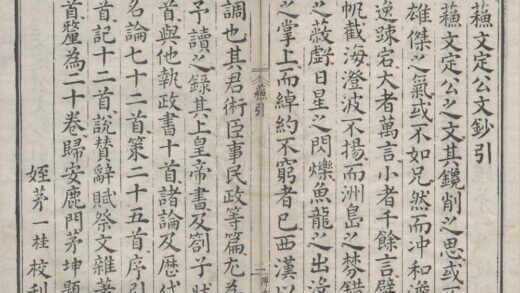 蘓文定公文鈔引
蘓文定公之文其鑱削之思或
雄傑之氣或不如兄然而冲和澹
逸踈宕大者萬言小者千餘言譬
帆截海澄波不揚而洲島之棼錯
之蔽虧日星之閃爍魚龍之出
之掌上而綽約不窮者已西漢以
蘓引
二
調也其君術臣事民政等篇尤為
予讀之録其上皇帝書及劄子狀
首與他執政書十首諸論及歴代
名論七十二首策二十五首序引
首記十二首說贊辭賦祭文雜著
首釐為二十卷歸安鹿門茅坤題
姪茅一桂校刋